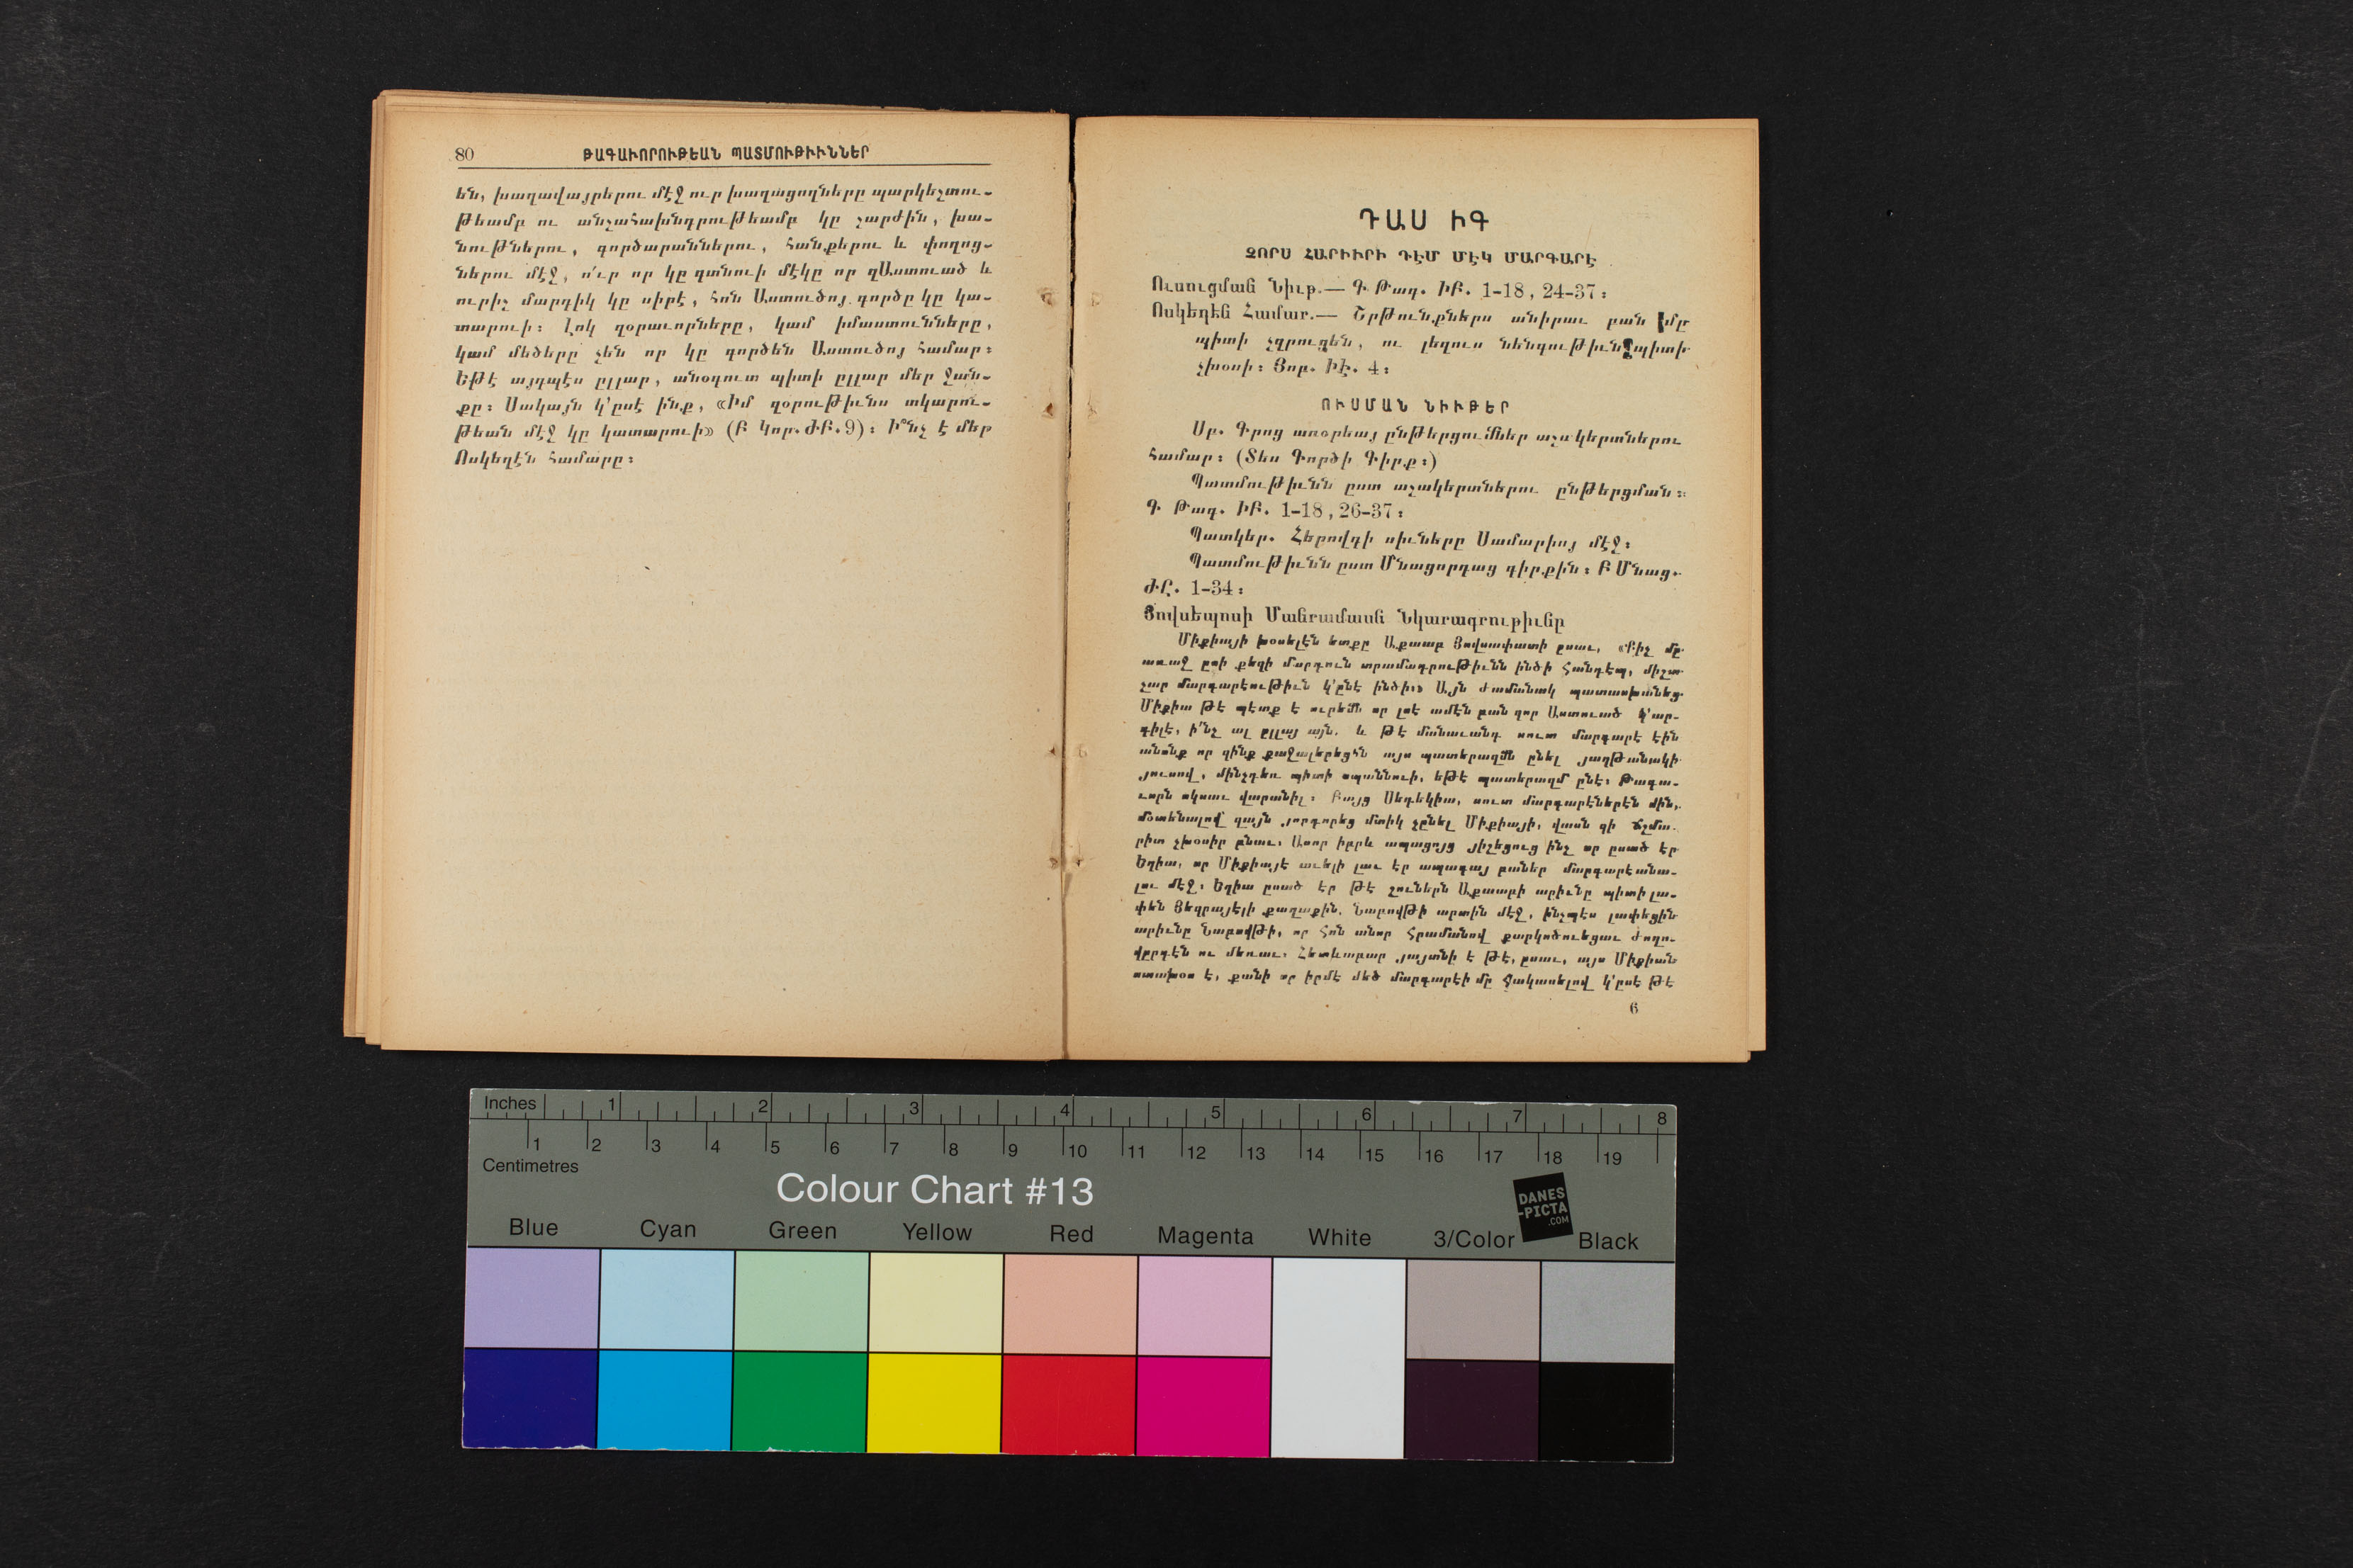 80 ԹԱԳԱՒՈՐՈՒԹԵԱՆ ՊԱՏՄՈՒԹԻՒՆՆԵՐ
են, խաղավայրերու մէջ ուր խաղացողները պարկեշտու-
թեամբ ու անշահախնդրութեամբ կը շարժին, խա-
նութներու, գործարաններու, հանքերու և փողոց-
ներու մէջ, ո՛ւր որ կը գտնուի մէկը որ զԱստուած և
ուրիշ մարդիկ կը սիրէ, հոն Աստուծոյ գործը կը կա-
տարուի: Լոկ զօրաւորները, կամ իմաստունները,
կամ մեծերը չեն որ կը գործեն Աստուծոյ համար:
Եթէ այդպէս ըլլար, անօգուտ պիտի ըլլար մեր ջան-
քը: Սակայն կ՚ըսէ ինք, «Իմ զօրութիւնս տկարու-
թեան մէջ կը կատարուի» (Բ Կոր. ԺԲ. 9): Ի՞նչ է մեր
Ոսկեղէն համարը:
ԴԱՍ ԻԳ
ՉՈՐՍ ՀԱՐԻՒՐԻ ԴԷՄ ՄԷԿ ՄԱՐԳԱՐԷ
Ուսուցման Նիւթ.— Գ Թագ. ԻԲ. 1-18, 24-37:
Ոսկեղէն Համար.— Շրթունքներս անիրաւ բան մը
պիտի չզրուցեն, ու լեզուս նենգութիւն պիտի
չխօսի: Յոբ. ԻԷ. 4:
ՈՒՍՄԱՆ ՆԻՒԹԵՐ
Սր. Գրոց առօրեայ ընթերցումներ աշակերտներու
համար: (Տես Գործի Գիրք:)
Պատմութիւնն ըստ աշակերտներու ընթերցման:
Գ Թագ. ԻԲ. 1-18, 26-37:
Պատկեր. Հերովդի սիւները Սամարիոյ մէջ:
Պատմութիւնն ըստ Մնացորդաց գիրքին: Բ Մնաց.
ԺԸ. 1-34:
Յովսեպոսի Մանրամասն Նկարագրութիւնը
Միքիայի խօսելէն ետքը Աքաաբ Յովսափատի ըսաւ, «Քիչ մը
առաջ ըսի քեզի մարդուն տրամադրութիւնն ինծի հանդէպ, միշտ
չար մարգարէութիւն կ՚ընէ ինծի:» Այն ժամանակ պատասխանեց
Միքիա թէ պէտք է ուրեմն որ լսէ ամէն բան զոր Աստուած կ՚ար-
գիլէ, ի՛նչ ալ ըլլայ այն. և թէ մանաւանդ սուտ մարգարէ էին
անոնք որ զինք քաջալերեցին այս պատերազմն ընել յաղթանակի
յուսով, մինչդեռ պիտի սպաննուի, եթէ պատերազմ ընէ: Թագա-
ւորն սկսաւ վարանիլ: Բայց Սեդեկիա, սուտ մարգարէներէն մին,
մօտենալով զայն յորդորեց մտիկ չընել Միքիայի, վասն զի ճշմա-
րիտ չխօսիր բնաւ: Ասոր իբրև ապացոյց յիշեցուց ինչ որ ըսած էր
Եղիա, որ Միքիայէ աւելի լաւ էր ապագայ բաներ մարգարէանա-
լու մէջ: Եղիա ըսած էր թէ շուներն Աքաաբի արիւնը պիտի լա-
փեն Յեզրայէլի քաղաքին, Նաբովթի արտին մէջ, ինչպէս լափեցին
արիւնը Նաբովթի, որ հոն անոր հրամանով քարկոծուեցաւ ժողո-
վըրդէն ու մեռաւ: Հետևաբար յայտնի է թէ, ըսաւ, այս Միքիան
ստախօս է, քանի որ իրմէ մեծ մարգարէի մը հակասելով կ՚ըսէ թէ
6
Inches 1 2 3 4 5 6 7 8
1 2 3 4 5 6 7 8 9 10 11 12 13 14 15 16 17 18 19
Centimetres
Colour Chart #13
DANES
-PICTA
.COM
Blue Cyan Green Yellow Red Magenta White 3/Color Black